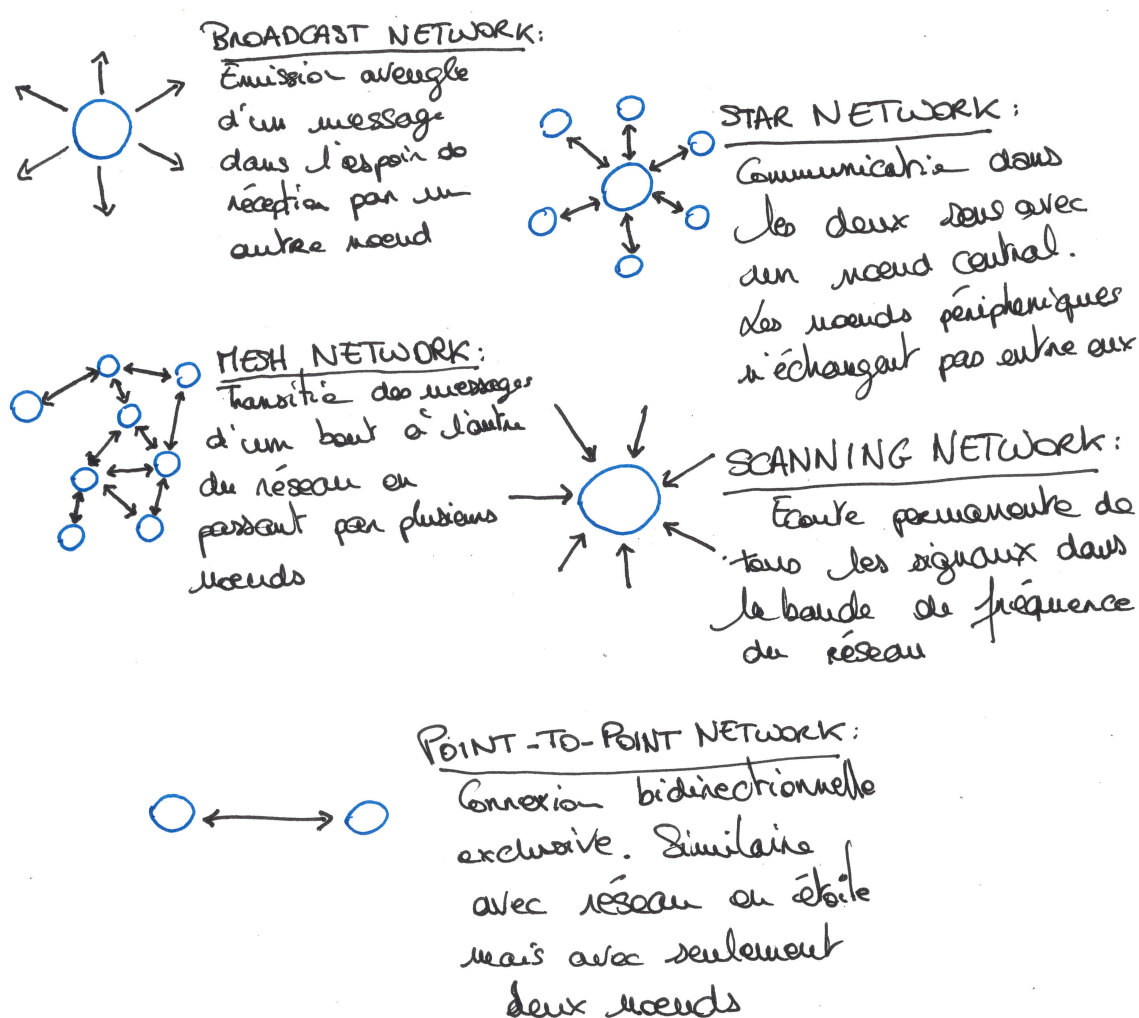 BROADCAST NETWORK:
Émission aveugle
d'un message
dans l'espoir de
réception par un
autre nœud
STAR NETWORK:
Communication dans
les deux sens avec
un nœud central.
Les nœuds périphériques
n'échangent pas entre eux
MESH NETWORK:
Transition des messages
d'un bout à l'autre
du réseau en
passant par plusieurs
nœuds
SCANNING NETWORK:
Écoute permanente de
tous les signaux dans
la bande de fréquence
du réseau
POINT-TO-POINT NETWORK:
Connexion bidirectionnelle
exclusive. Similaire
avec réseau en étoile
mais avec seulement
deux nœuds